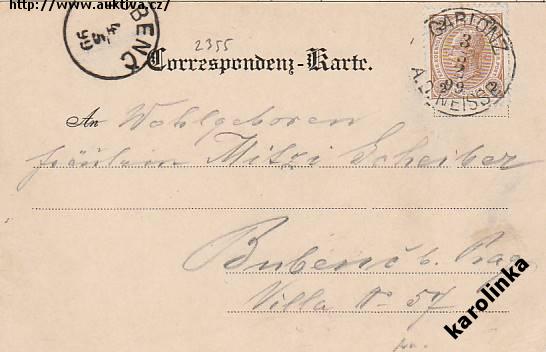 http://www.auktiva.cz/
BENC
4 5
99
2355
GABLONZ
3
99
A.D. NEISSE
2
Correspondenz-Karte.
An Wohlgeboren
Fräulein Mitzi Scheiber
Bubenč b. Prag
Villa No 57
karolinka